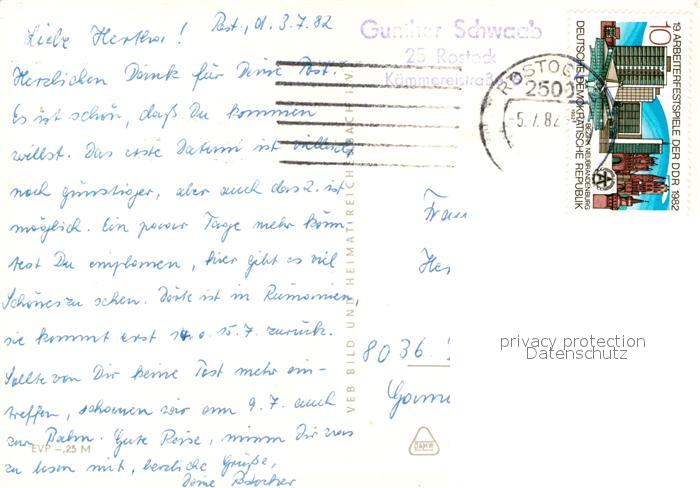 Rost., d. 3.7.82
Liebe Hertha!
Herzlichen Dank für Deine Post.
Es ist schön, daß Du kommen
willst. Das erste Datum ist vielleicht
noch günstiger, aber auch das 2. ist
möglich. Ein paar Tage mehr könn-
test Du einplanen, hier gibt es viel
Schönes zu sehen. Dörte ist in Rumänien,
sie kommt erst 15.7. zurück.
Sollte von Dir keine Post mehr ein-
treffen, schauen wir am 9.7. auch
zur Bahn. Gute Reise, nimm Dir was
zu lesen mit, herzliche Grüße,
Deine
EVP -,25 M
VEB BILD UND HEIMAT REICHENBACH I. V.
Gunther Schwaab
25 Rostock
Kämmereistraße
ROSTOCK
2500
-5.7.82
10
19. ARBEITERFESTSPIELE DER DDR 1982
BEZIRK NEUBRANDENBURG
DEUTSCHE DEMOKRATISCHE REPUBLIK
Frau
8036
privacy protection
Datenschutz